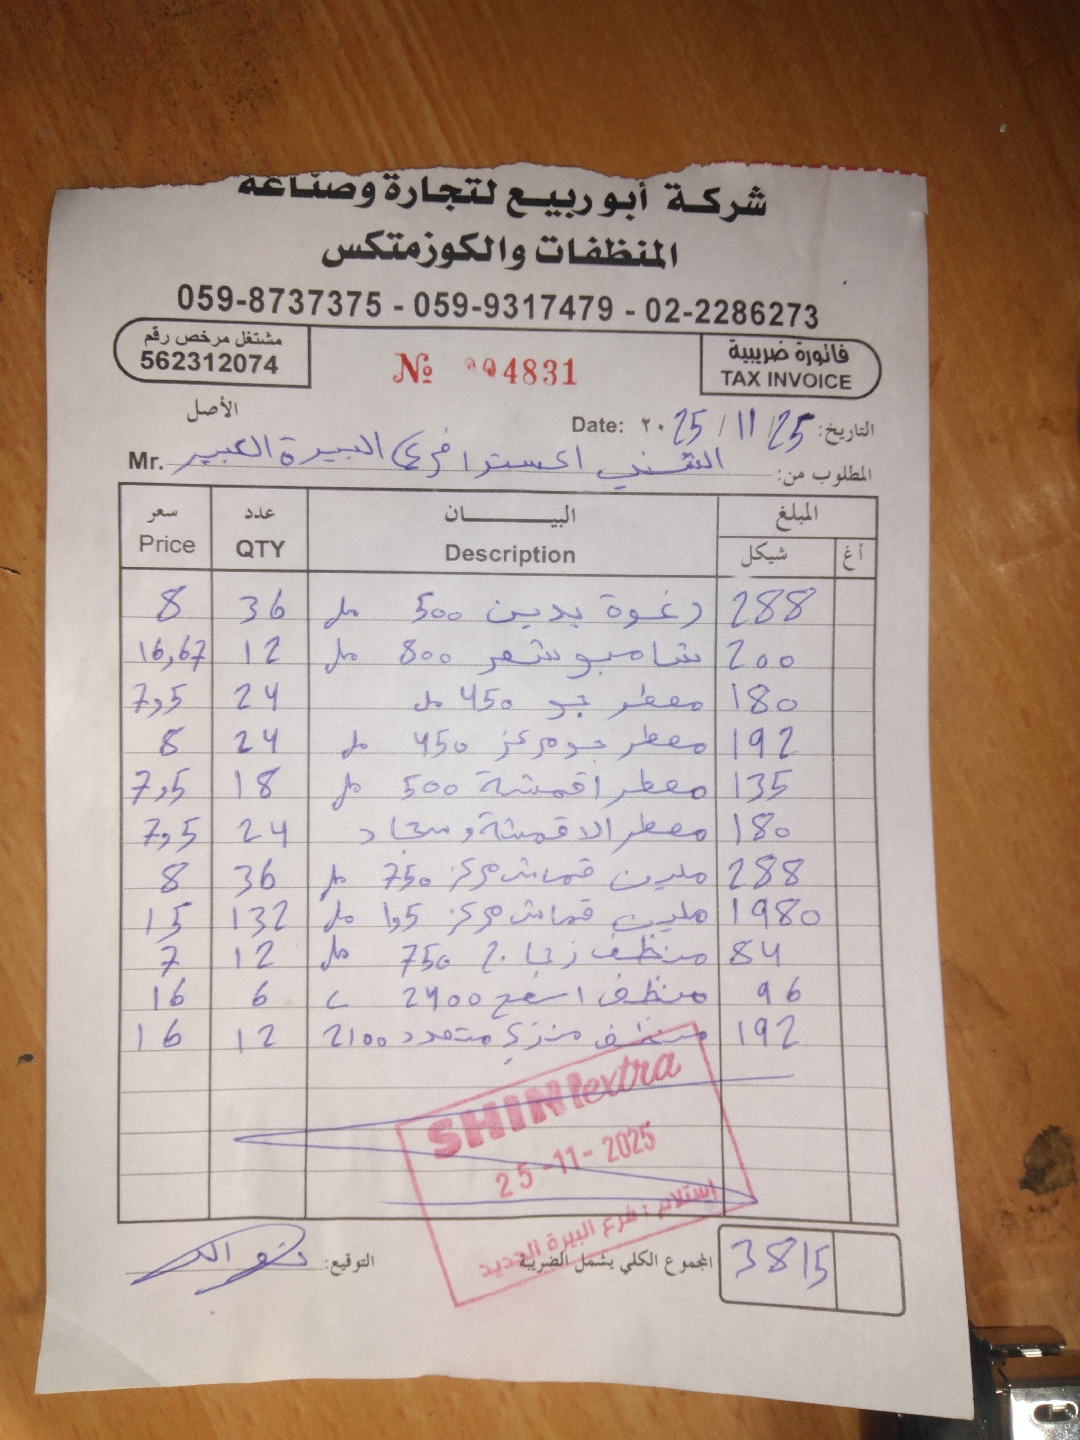 شركة أبو ربيع لتجارة وصناعة
المنظفات والكوزمتكس
059-8737375 - 059-9317479 - 02-2286273
مشتغل مرخص رقم
562312074
№ 004831
فاتورة ضريبية
TAX INVOICE
الأصل
التاريخ: 25/11/2025 Date:
المطلوب من: الشني اكسترا فرع البيرة الكبير Mr.
المبلغ البيـــان عدد سعر
أغ شيكل Description QTY Price
288 رغوة يدين 500 مل 36 8
200 شامبو شعر 800 مل 12 16,67
180 معطر جو 450 مل 24 7,5
192 معطر جو مركز 450 مل 24 8
135 معطر اقمشة 500 مل 18 7,5
180 معطر الاقمشة وسجاد 24 7,5
288 ملين قماش مركز 750 مل 36 8
1980 ملين قماش مركز 1,5 مل 132 15
84 منظف زجاج 750 مل 12 7
96 منظف اسطح 2400 6 16
192 منظف منزلي متعدد 2100 12 16
SHINI extra
25-11-2025
إستلام : فرع البيرة الجديد
3815 المجموع الكلي يشمل الضريبة
التوقيع: